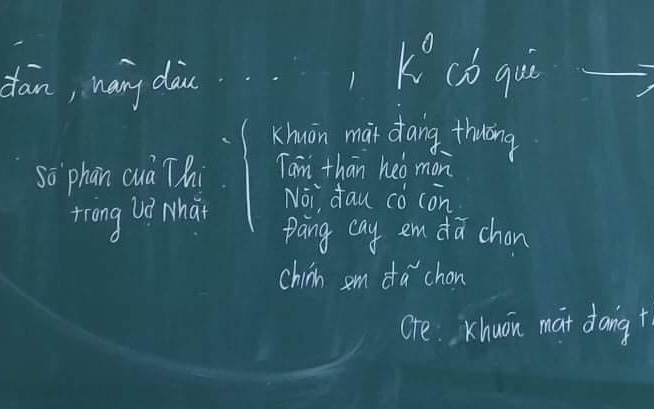 đãn, nàng dâu ...., K⁰ có quê →
số phận của Thị
trong Vợ Nhặt
Khuôn mặt đáng thương
Tấm thân héo mòn
Nỗi đau có còn
Đắng cay em đã chọn
Chính em đã chọn
Cre: Khuôn mặt đáng t